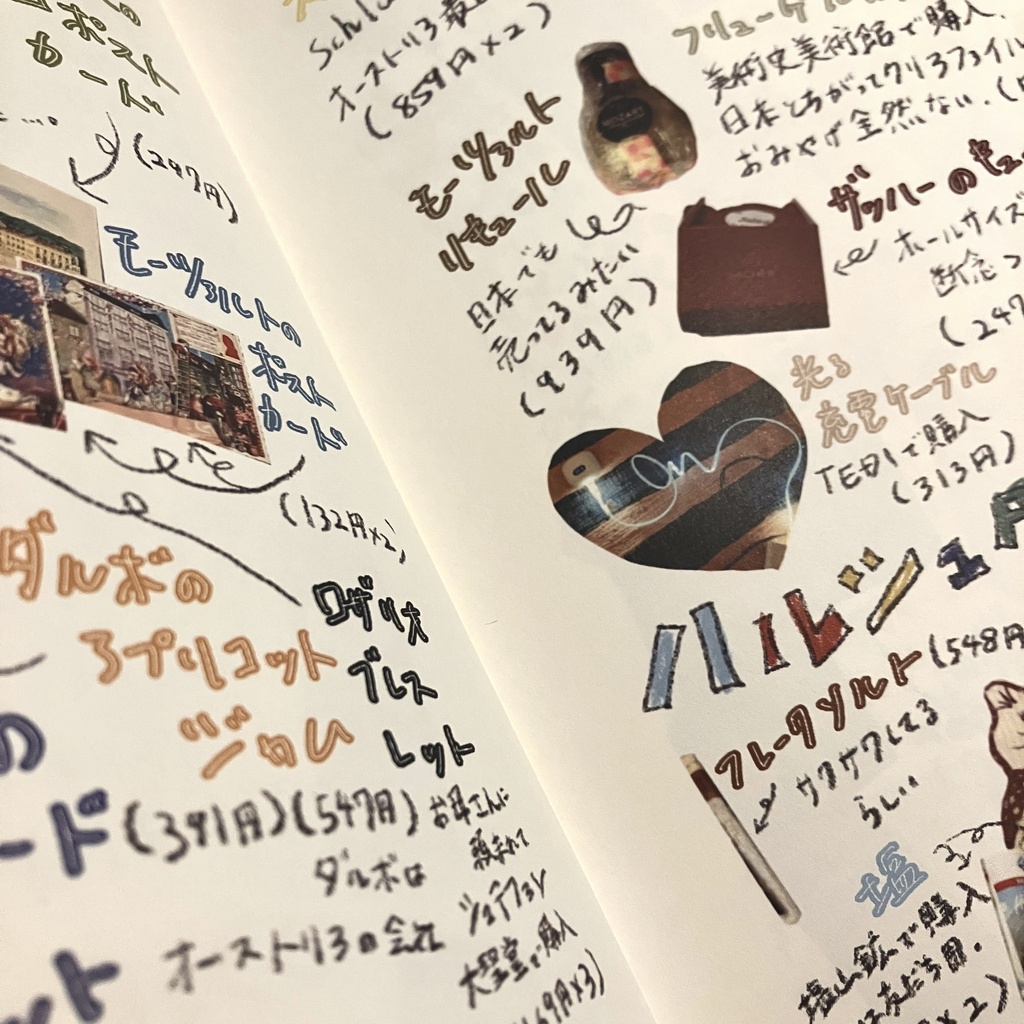 の
ポスト
カード
(297円)
モーツァルトの
ポスト
カード
(132円×2)
ダルボの
アプリコット
ジャム
(391円)(547円)
ダルボは
オーストリアの会社
ロザリオ
ブレス
レット
お母さんに
頼まれて
シュテファン
大聖堂で購入
69円×3)
の
ード
ット
オーストリア
(859円×2)
モーツァルト
リキュール
日本でも
売ってるみたい
(939円)
美術史美術館で購入。
日本とちがってクリアファイル
おみやげ全然ない。
ザッハーの
ホールサイズ
断念
(247
光る
充電ケーブル
TEDiで購入
(313円)
ハルシュ
フレークソルト(548円
サクサクしてる
らしい
塩
塩山鉱で購入
は友だち用。
×2)